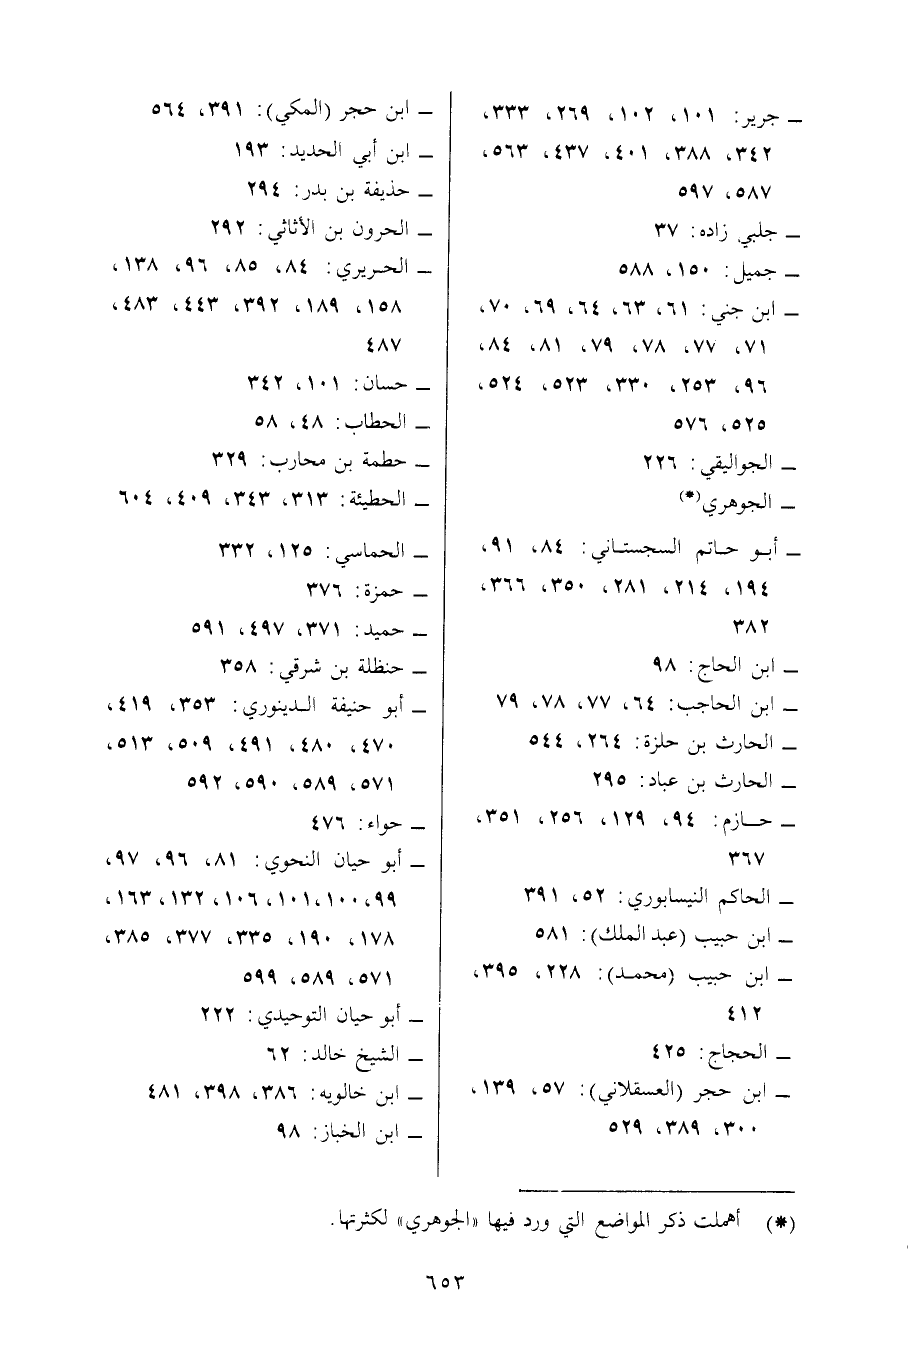 ـ جرير: ١٠١، ١٠٢، ٢٦٩، ٣٣٣،
٣٤٢، ٣٨٨، ٤٠١، ٤٣٧، ٥٦٣،
٥٨٧، ٥٩٧
ـ جلبي زاده: ٣٧
ـ جميل: ١٥٠، ٥٨٨
ـ ابن جني: ٦١، ٦٣، ٦٤، ٦٩، ٧٠،
٧١، ٧٧، ٧٨، ٧٩، ٨١، ٨٤،
٩٦، ٢٥٣، ٣٣٠، ٥٢٣، ٥٢٤،
٥٢٥، ٥٧٦
ـ الجواليقي: ٢٢٦
ـ الجوهري(*)
ـ أبو حاتم السجستاني: ٨٤، ٩١،
١٩٤، ٢١٤، ٢٨١، ٣٥٠، ٣٦٦،
٣٨٢
ـ ابن الحاج: ٩٨
ـ ابن الحاجب: ٦٤، ٧٧، ٧٨، ٧٩
ـ الحارث بن حلزة: ٢٦٤، ٥٤٤
ـ الحارث بن عباد: ٢٩٥
ـ حازم: ٩٤، ١٢٩، ٢٥٦، ٣٥١،
٣٦٧
ـ الحاكم النيسابوري: ٥٢، ٣٩١
ـ ابن حبيب (عبد الملك): ٥٨١
ـ ابن حبيب (محمد): ٢٢٨، ٣٩٥،
٤١٢
ـ الحجاج: ٤٢٥
ـ ابن حجر (العسقلاني): ٥٧، ١٣٩،
٣٠٠، ٣٨٩، ٥٢٩
ـ ابن حجر (المكي): ٣٩١، ٥٦٤
ـ ابن أبي الحديد: ١٩٣
ـ حذيفة بن بدر: ٢٩٤
ـ الحرون بن الأثاثي: ٢٩٢
ـ الحريري: ٨٤، ٨٥، ٩٦، ١٣٨،
١٥٨، ١٨٩، ٣٩٢، ٤٤٣، ٤٨٣،
٤٨٧
ـ حسان: ١٠١، ٣٤٢
ـ الحطاب: ٤٨، ٥٨
ـ حطمة بن محارب: ٣٢٩
ـ الحطيئة: ٣١٣، ٣٤٣، ٤٠٩، ٦٠٤
ـ الحماسي: ١٢٥، ٣٣٢
ـ حمزة: ٣٧٦
ـ حميد: ٣٧١، ٤٩٧، ٥٩١
ـ حنظلة بن شرقي: ٣٥٨
ـ أبو حنيفة الدينوري: ٣٥٣، ٤١٩،
٤٧٠، ٤٨٠، ٤٩١، ٥٠٩، ٥١٣،
٥٧١، ٥٨٩، ٥٩٠، ٥٩٢
ـ حواء: ٤٧٦
ـ أبو حيان النحوي: ٨١، ٩٦، ٩٧،
٩٩، ١٠٠، ١٠١، ١٠٦، ١٣٢، ١٦٣،
١٧٨، ١٩٠، ٣٣٥، ٣٧٧، ٣٨٥،
٥٧١، ٥٨٩، ٥٩٩
ـ أبو حيان التوحيدي: ٢٢٢
ـ الشيخ خالد: ٦٢
ـ ابن خالويه: ٣٨٦، ٣٩٨، ٤٨١
ـ ابن الخباز: ٩٨
(*) أهملت ذكر المواضع التي ورد فيها «الجوهري» لكثرتها.
٦٥٣